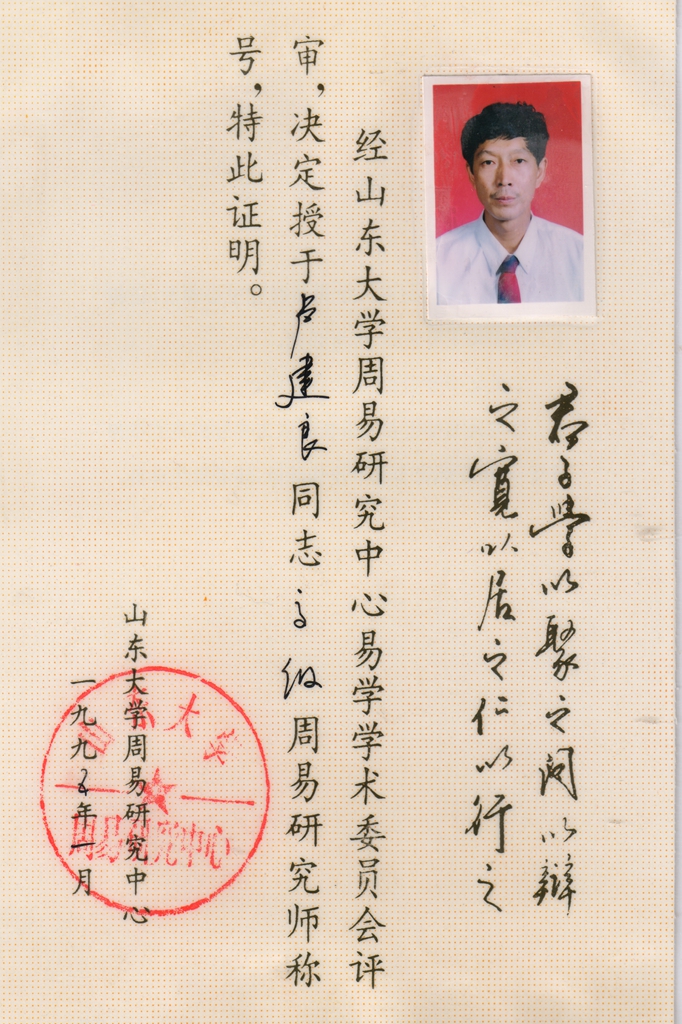 君子学以聚之问以辩
之宽以居之仁以行之
经山东大学周易研究中心易学学术委员会评
审，决定授于卢建良同志高级周易研究师称
号，特此证明。
山东大学周易研究中心
一九九五年一月
山东大学
周易研究中心